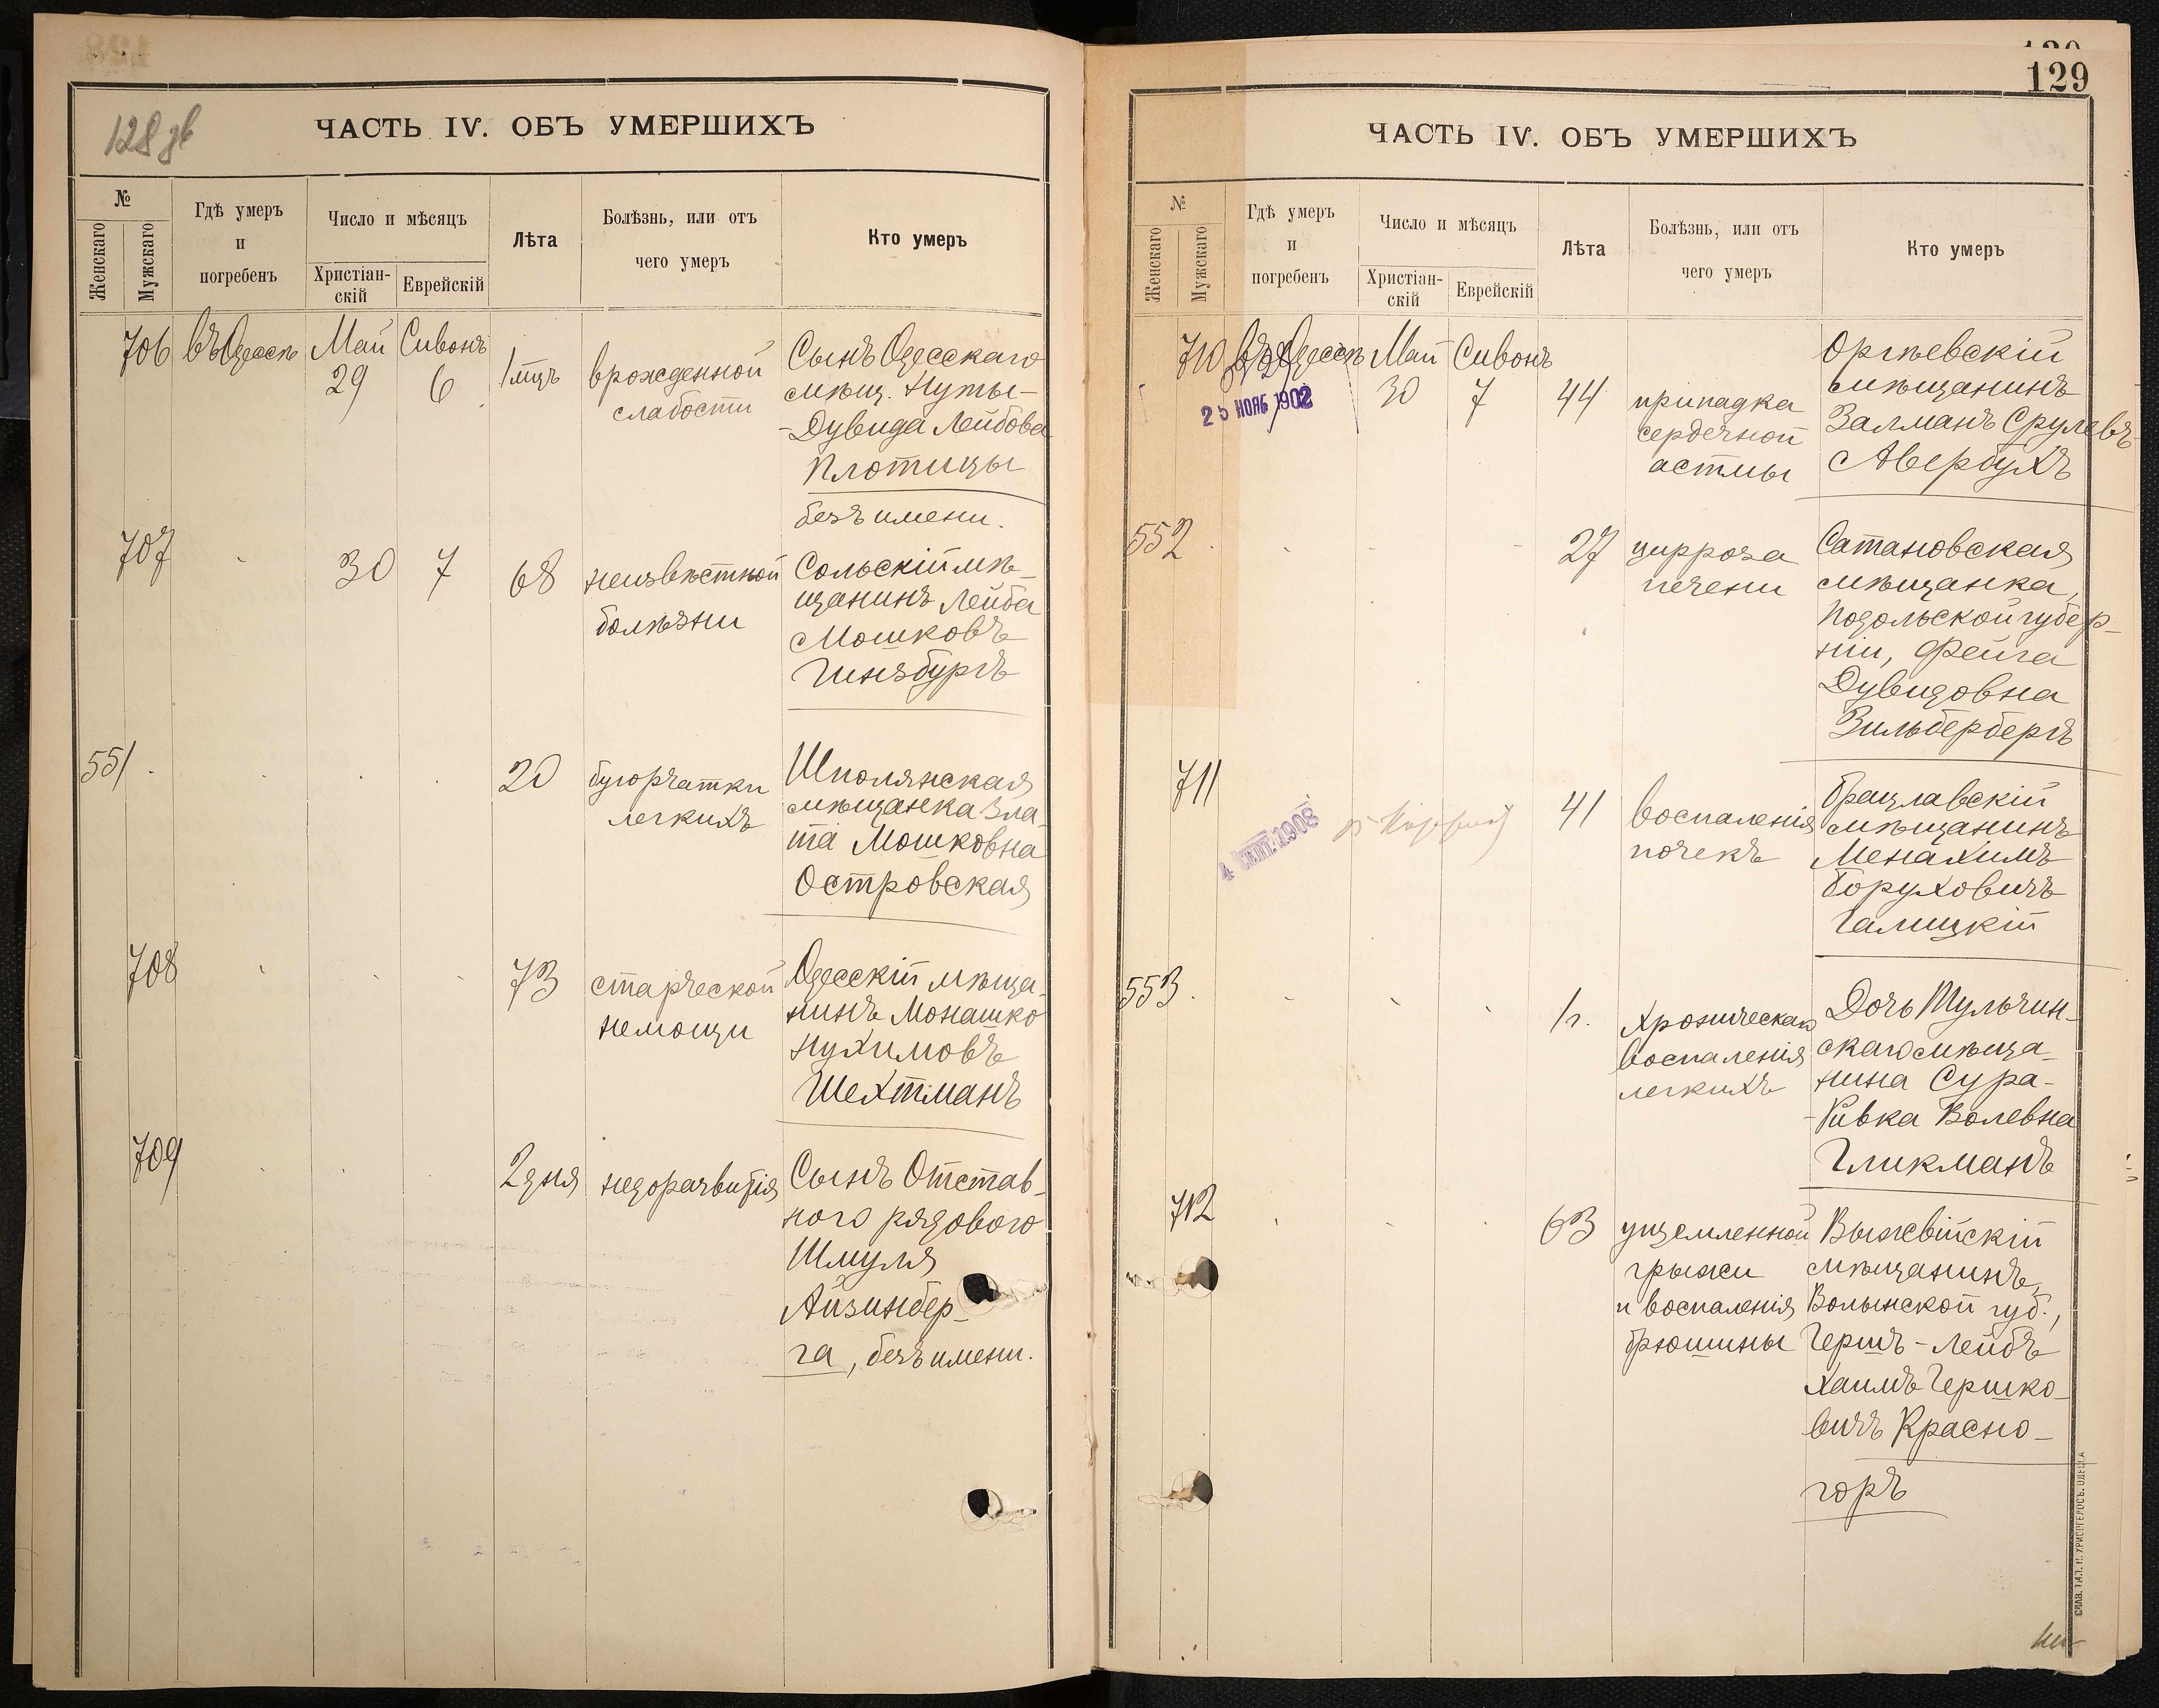 128 зв
ЧАСТЬ IV. ОБЪ УМЕРШИХЪ
№
Женскаго
Мужскаго
Гдѣ умеръ
и
погребенъ
Число и мѣсяцъ
Христіан-
скій
Еврейскій
Лѣта
Болѣзнь, или отъ
чего умеръ
Кто умеръ
706 въ Одессѣ Май Сивонъ
29 6 1 мцъ
врожденной
слабости
Сынъ Одесскаго
мѣщ. Нуты-
-Дувида Лейбова
Плотицы
безъ имени.
707 30 7 68
неизвѣстной
болѣзни
Сольскій мѣ-
щанинъ Лейба
Мошковъ
Гинзбургъ
551 20
бугорчатки
легкихъ
Шполянская
мѣщанка Зла-
та Мошковна
Островская
708 73
старческой
немощи
Одесскій мѣща-
нинъ Монашко
Нухимовъ
Шехтманъ
709 2 дня
недоразвитія
Сынъ Отстав-
ного рядового
Шмуля
Айзинбер-
га, безъ имени.
129
ЧАСТЬ IV. ОБЪ УМЕРШИХЪ
№
Женскаго
Мужскаго
Гдѣ умеръ
и
погребенъ
Число и мѣсяцъ
Христіан-
скій
Еврейскій
Лѣта
Болѣзнь, или отъ
чего умеръ
Кто умеръ
710 въ Одессѣ Май Сивонъ
25 НОЯБ 1902
30 7 44
припадка
сердечной
астмы
Оргѣевскій
мѣщанинъ
Залманъ Срулевъ
Авербухъ
552 27
цирроза
печени
Сатановская
мѣщанка,
Подольской губер-
ніи, Фейга
Дувидовна
Зильбербергъ
711 41
4 СЕНТ 1908
воспаленія
почекъ
Брацлавскій
мѣщанинъ
Менахимъ
Боруховичъ
Галицкій
553 1 г.
Хроническаго
воспаленія
легкихъ
Дочь Тульчин-
скаго мѣща-
нина Сура-
-Ривка Волевна
Гликманъ
712 63
ущемленной
грыжи
и воспаленія
брюшины
Выжвійскій
мѣщанинъ,
Волынской губ.,
Гершъ-Лейбъ
Хаимъ Гершко-
вичъ Красно-
горъ
СЛАВ. ТИП. Н. ХРИСОГЕЛОСЪ, ОДЕССА